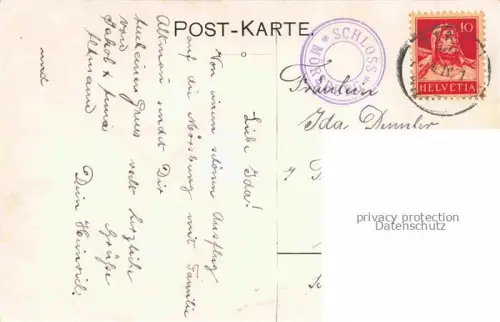 POST-KARTE.
SCHLOSS
MÖRSBURG
10
HELVETIA
Liebe Ida!
Von einem schönen Ausflug
auf die Mörsburg mit Familie
Altman sendet Dir
recht herzliche
Grüße
Dein Heinrich.
auch einen Gruss
von
Jakob &
Altmann
und
Fräulein
Ida
privacy protection
Datenschutz